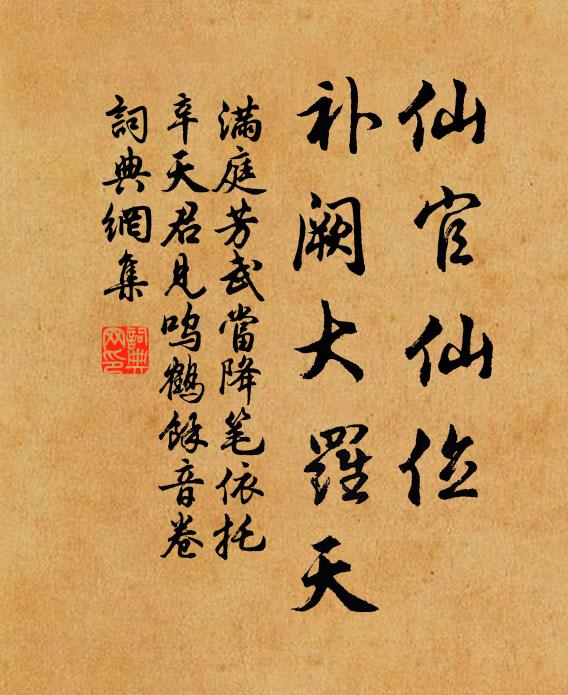 仙官仙位
补阙大羅天
滿庭芳武當降笔依托
辛天君见鸣鶴餘音卷
詞典網集
詞典
网印